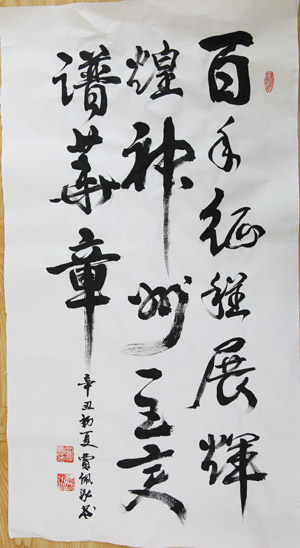 百年征程展輝
煌神州巨变
谱華章
辛丑初夏賈佩书